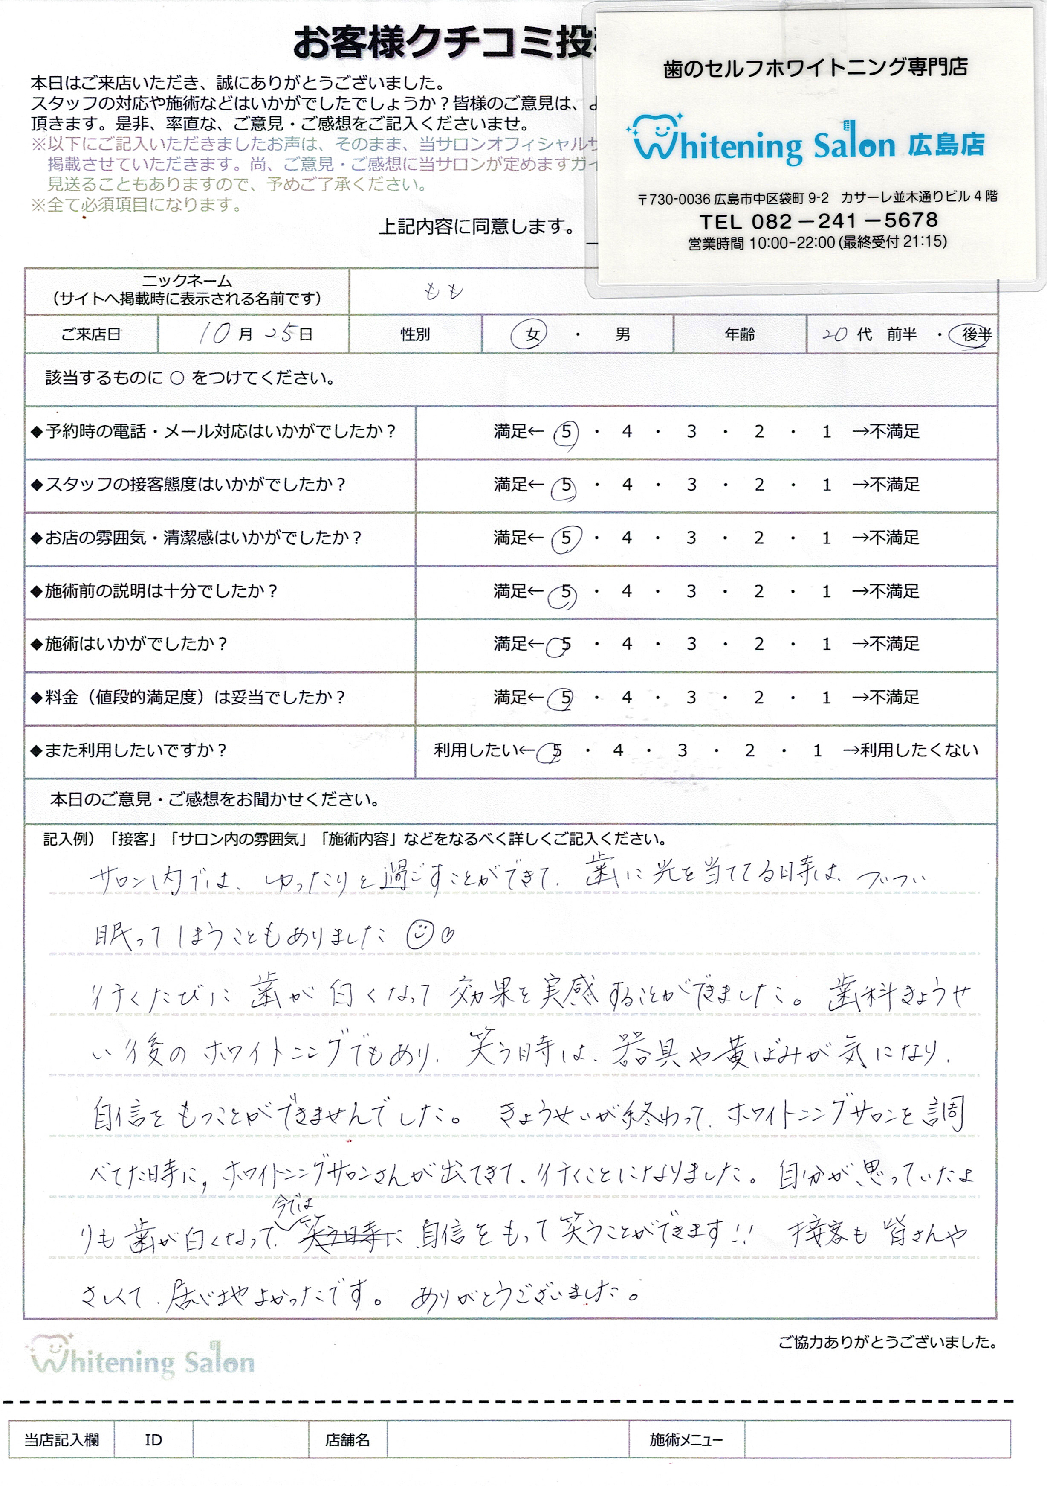 お客様クチコミ投
本日はご来店いただき、誠にありがとうございました。
スタッフの対応や施術などはいかがでしたでしょうか？皆様のご意見は、よ
頂きます。是非、率直な、ご意見・ご感想をご記入くださいませ。
※以下にご記入いただきましたお声は、そのまま、当サロンオフィシャルサ
掲載させていただきます。尚、ご意見・ご感想に当サロンが定めますガイ
見送ることもありますので、予めご了承ください。
※全て必須項目になります。
上記内容に同意します。
歯のセルフホワイトニング専門店
Whitening Salon 広島店
〒730-0036 広島市中区袋町 9-2 カサーレ並木通りビル 4 階
TEL 082－241－5678
営業時間 10:00-22:00 (最終受付 21:15)
ニックネーム
（サイトへ掲載時に表示される名前です） もも
ご来店日 10 月 25 日 性別 女 ・ 男 年齢 20 代 前半 ・ 後半
該当するものに ○ をつけてください。
◆予約時の電話・メール対応はいかがでしたか？ 満足← 5 ・ 4 ・ 3 ・ 2 ・ 1 →不満足
◆スタッフの接客態度はいかがでしたか？ 満足← 5 ・ 4 ・ 3 ・ 2 ・ 1 →不満足
◆お店の雰囲気・清潔感はいかがでしたか？ 満足← 5 ・ 4 ・ 3 ・ 2 ・ 1 →不満足
◆施術前の説明は十分でしたか？ 満足← 5 ・ 4 ・ 3 ・ 2 ・ 1 →不満足
◆施術はいかがでしたか？ 満足← 5 ・ 4 ・ 3 ・ 2 ・ 1 →不満足
◆料金（値段的満足度）は妥当でしたか？ 満足← 5 ・ 4 ・ 3 ・ 2 ・ 1 →不満足
◆また利用したいですか？ 利用したい← 5 ・ 4 ・ 3 ・ 2 ・ 1 →利用したくない
本日のご意見・ご感想をお聞かせください。
記入例）「接客」「サロン内の雰囲気」「施術内容」などをなるべく詳しくご記入ください。
サロン内では、ゆったりと過ごすことができて、歯に光を当ててる時は、ついつい
眠ってしまうこともありました
行くたびに歯が白くなって効果を実感することができました。歯科きょうせ
い後のホワイトニングでもあり、笑う時は、器具や黄ばみが気になり、
自信をもつことができませんでした。きょうせいが終わって、ホワイトニングサロンを調
べてた時に、ホワイトニングサロンさんが出てきて、行くことになりました。自分が思っていたよ
りも歯が白くなって、今では笑う時に自信をもって笑うことができます!! 接客も皆さんや
さしくて、居心地よかったです。ありがとうございました。
ご協力ありがとうございました。
Whitening Salon
当店記入欄 ID 店舗名 施術メニュー